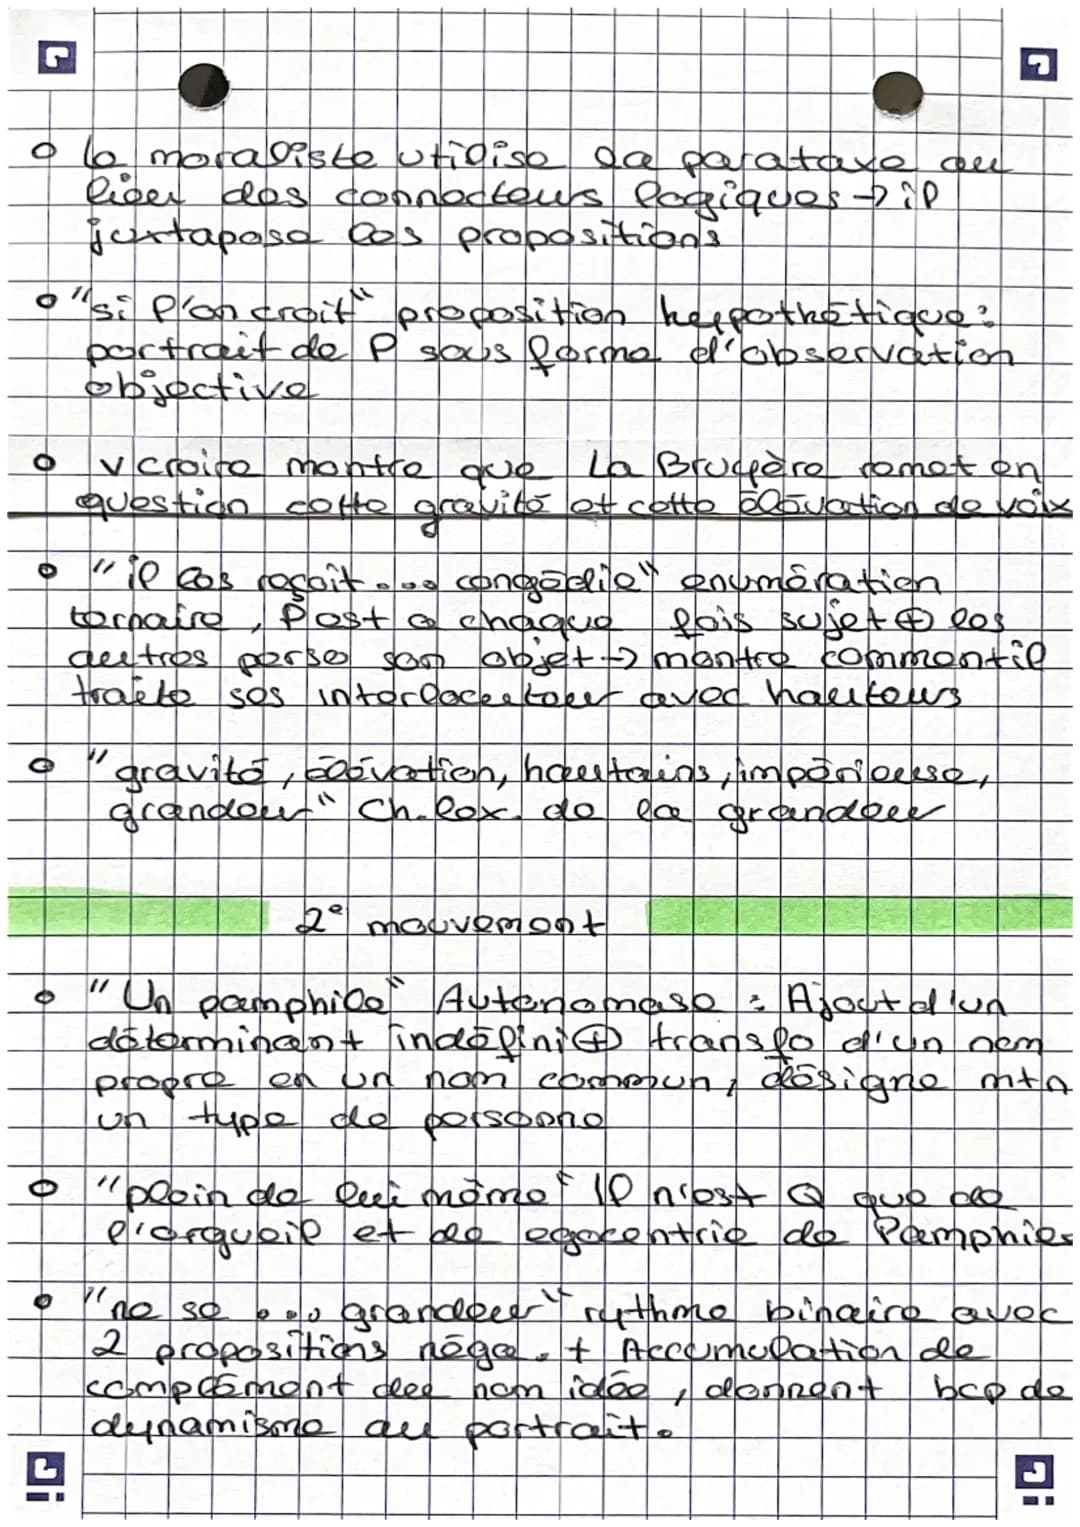 le moraliste utilise la parataxe au
lieu des connecteurs logiques → il
juxtapose les propositions
"si l'on croit" proposition hypothétique :
portrait de P sous forme d'observation
objective
v croire montre que La Bruyère remet en
question cette gravité et cette élévation de voix
"il les reçoit ... congédie" enumération
ternaire, P est a chaque fois sujet ⊕ les
autres perso son objet → montre comment il
traite ses interlocuteur avec hauteurs
"gravité, élévation, hautains, impérieuse,
grandeur" Ch. lex. de la grandeur
2e mouvement
"Un pamphile" Autonomase : Ajout d'un
déterminant indéfini ⊕ transfo d'un nom
propre en un nom commun, désigne mtn
un type de personne
"plein de lui même" Il n'est que de
l'orgueil et de egocentrie de Pamphile
"ne se ... grandeur" rythme binaire avec
2 propositions néga. + Accumulation de
complément du nom idée, donnent bcp de
dynamisme au portrait.